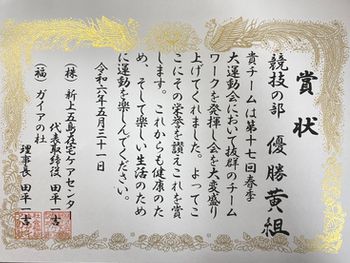 賞状
競技の部 優勝 黄組
貴チームは第十七回春季
大運動会において抜群のチーム
ワークを発揮し会を大変盛り
上げてくれました。よってこ
こにその栄誉を讃えこれを賞
します。これからも健康のた
め、そして楽しい生活のため
に運動を楽しんでください。
令和六年五月三十一日
(株) 新上五島在宅ケアセンター
代表取締役 田平一吉
(福) ガイアの杜
理事長 田平一吉